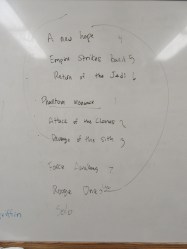 A new hope
Empire Strikes back 5
Return of the Jedi 6
Phantom menace 1
Attack of the Clones 2
Revenge of the Sith 3
Force Awakens 7
Rogue One
Solo